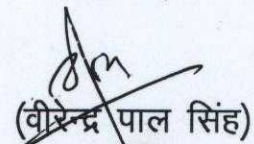 (वीरेन्द्र पाल सिंह)